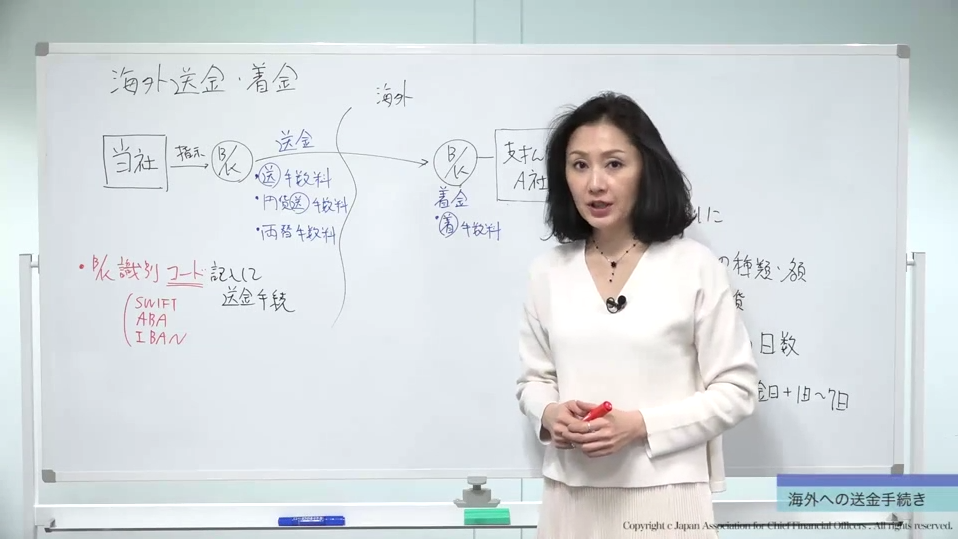 海外送金・着金
海外
当社
指示
B/K
送金
B/K
支払
A社
・送手数料
・円貨送手数料
・両替手数料
着金
・着手数料
・B/K 識別コード 記入して
送金手続
SWIFT
ABA
IBAN
に
の種類・額
貨
日数
金日+1日~7日
海外への送金手続き
Copyright c Japan Association for Chief Financial Officers . All rights reserved.